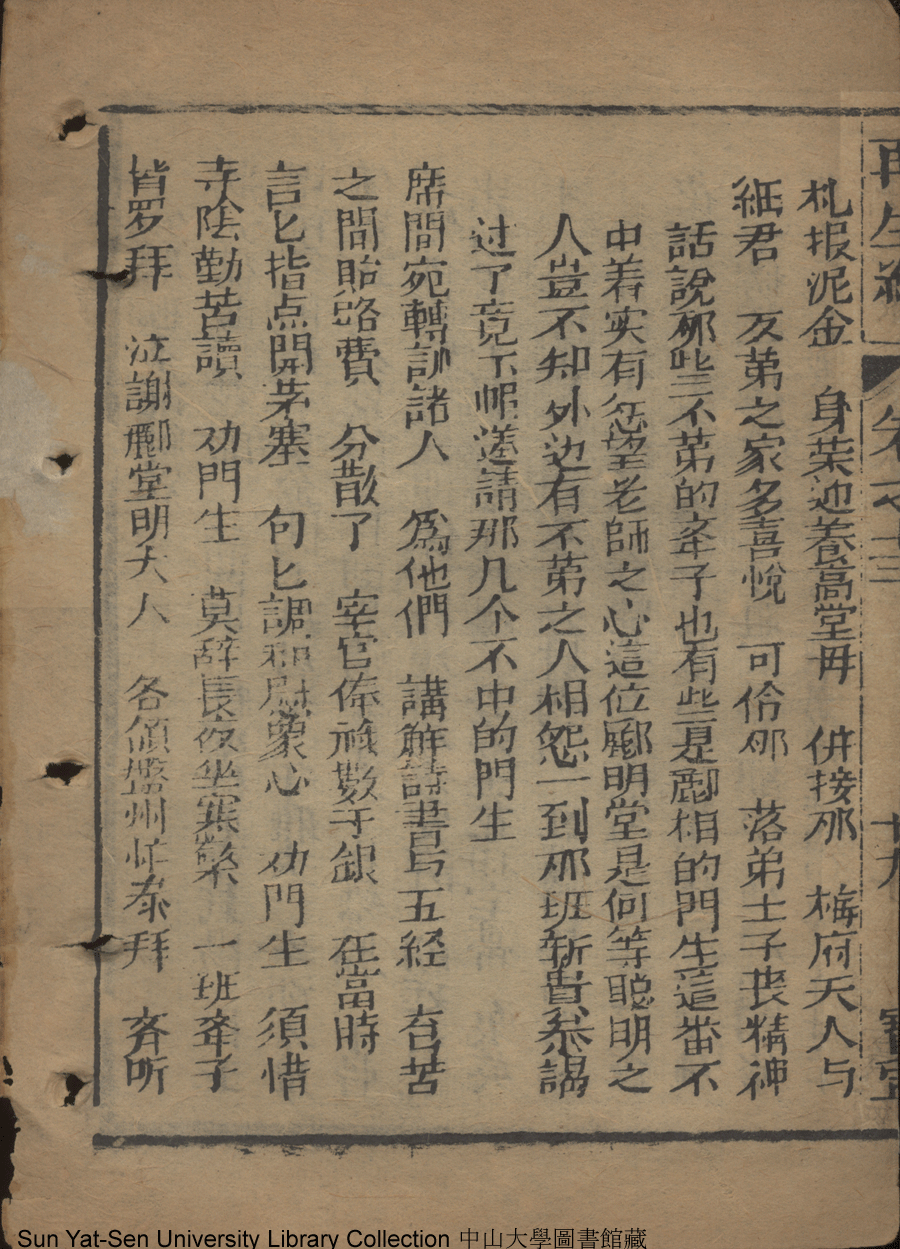 再生緣 卷之十三 十九 寶寧
札报泥金 身荣迎養高堂毋 併接𨙻 梅府夫人与
紙君 及弟之家多喜悅 可伶𨙻 落弟士子丧精神
話說𨙻些不苐的卒子也有些是酈相的門生這畨不
中着实有怨望老師之心這位酈明堂是何等聪明之
人豈不知外边有不苐之人相怨一到𨙻班新貴叅謁
过了竟下帽送請那几个不中的門生
席間宛轉訓諸人 為他們 講觧詩書与五經 有苦
之間貽路費 分散了 宰官俸祿数千銀 在當時
言匕指点開茅塞 句匕調和慰衆心 功門生 須惜
寺陰勤苦讀 功門生 莫辞長夜坐寒檠 一班卒子
皆罗拜 泣謝酈堂明大人 各領盤川忙泰拜 斉听
Sun Yat-Sen University Library Collection 中山大學圖書館藏